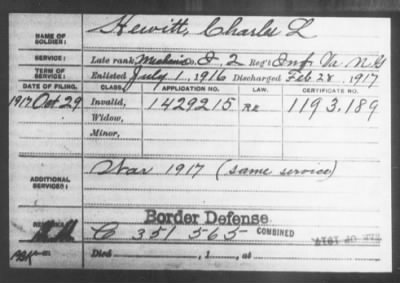 NAME OF SOLDIER: Hewitt, Charles L
SERVICE: Late rank, Mechanic Co. I, 2 Reg't Inf. Va. N.G.
TERM OF SERVICE: Enlisted July 1, 1916 Discharged Feb. 28, 1917
DATE OF FILING. CLASS. APPLICATION NO. LAW. CERTIFICATE NO.
1917 Oct. 29 Invalid, 1429215 1193.189
Widow,
Minor,
ADDITIONAL SERVICES: War 1917 (same service)
Border Defense
C 351 565 COMBINED
Died , 1 , at